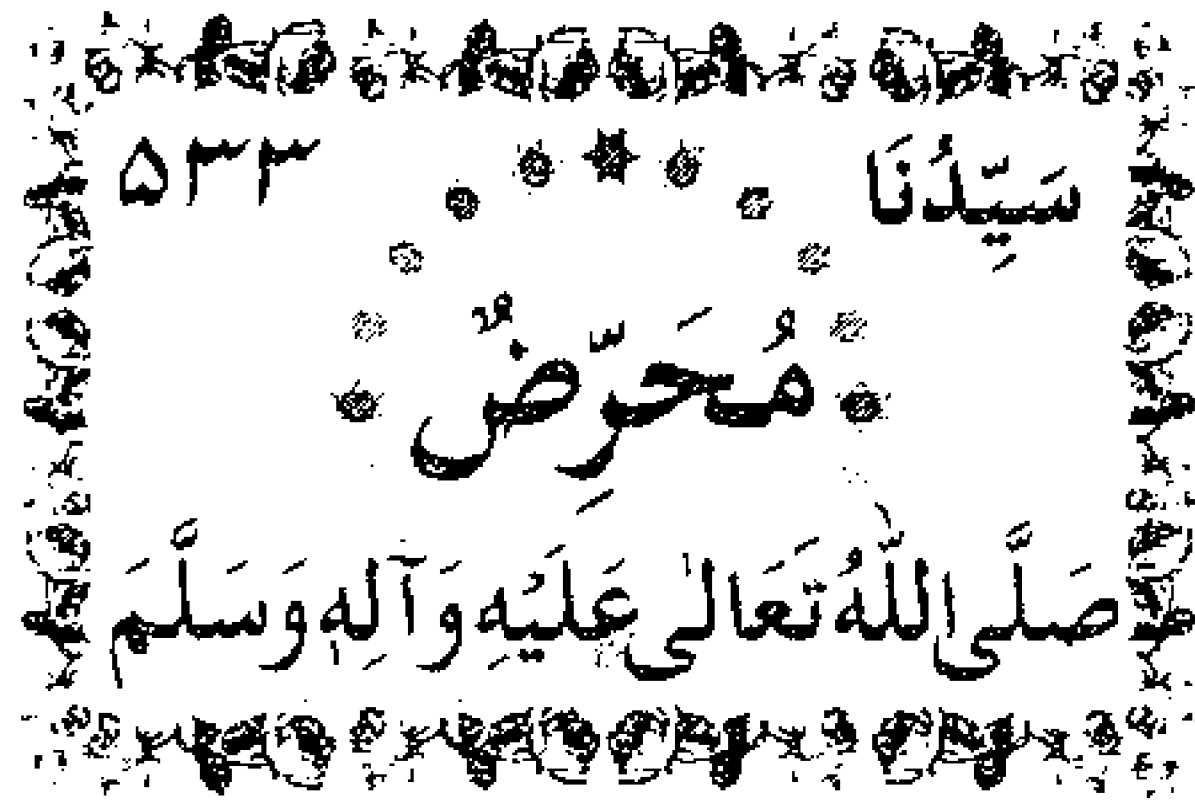 سَيِّدُنَا ۵۳۳
مُحَرِّضٌ
صَلَّى اللّٰهُ تَعَالٰى عَلَيْهِ وَآلِهٖ وَسَلَّمَ